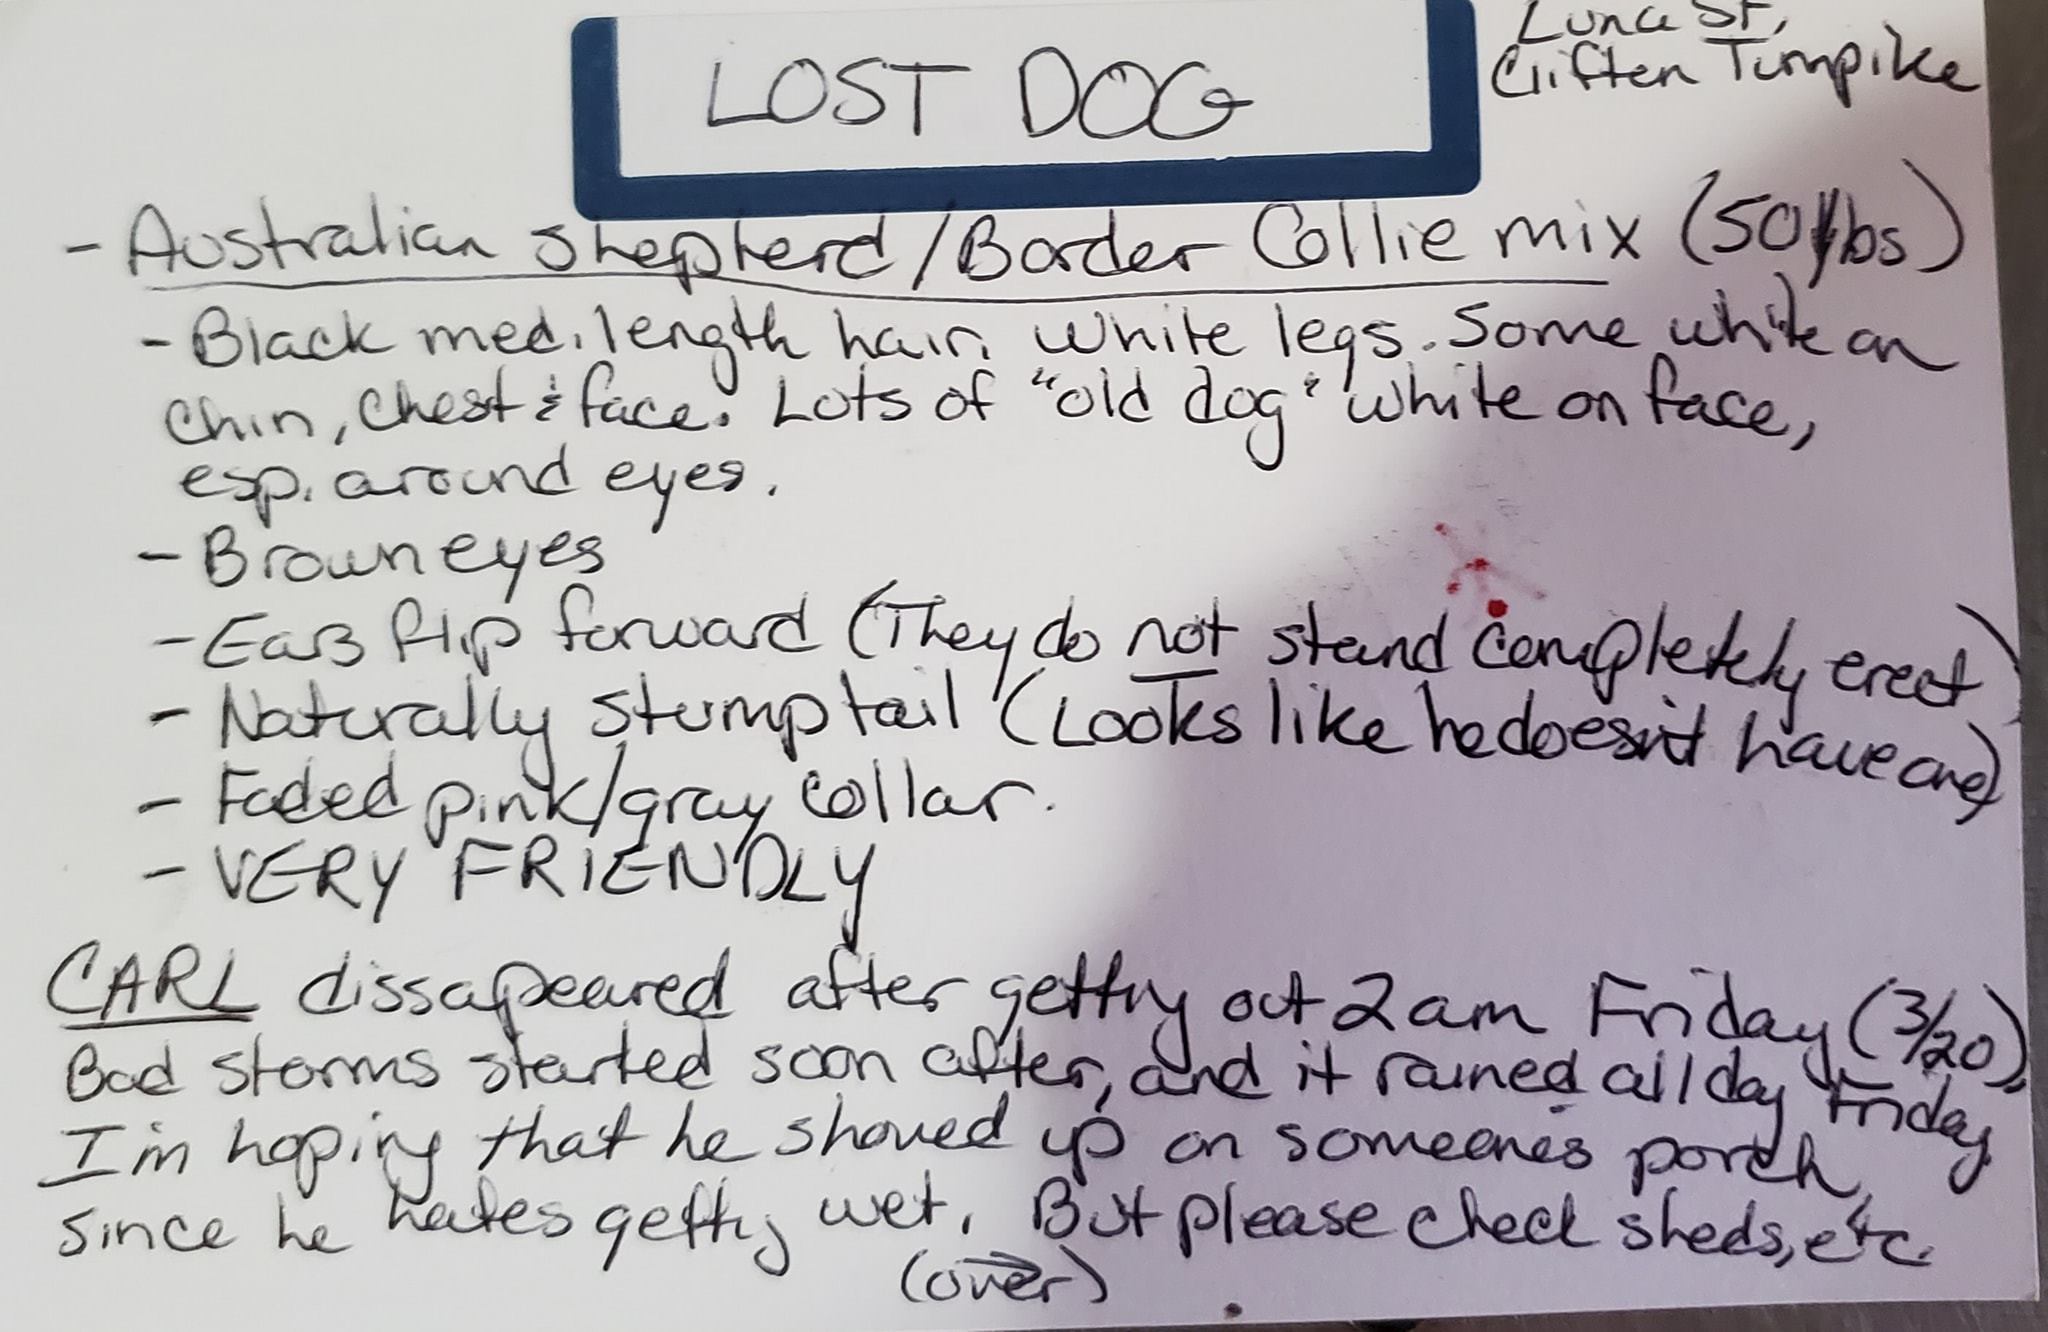 LOST DOG
Luna St,
Cliften Turnpike
- Australian shepherd/Border Collie mix (50lbs)
- Black med. length hair. White legs. Some white on
chin, chest & face. Lots of "old dog" white on face,
esp. around eyes.
- Brown eyes
- Ears flip forward (They do not stand completely erect)
- Naturally stump tail (Looks like he doesn't have one)
- Faded pink/gray collar.
- VERY FRIENDLY
CARL dissapeared after getting out 2am Friday (3/20),
Bad storms started soon after, and it rained all day Friday
I'm hoping that he showed up on someone's porch,
since he hates getting wet. But please check sheds, etc.
(over)